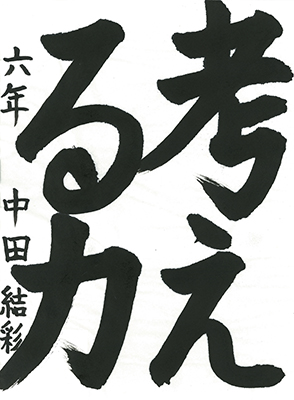 考え
る力
六年 中田結彩